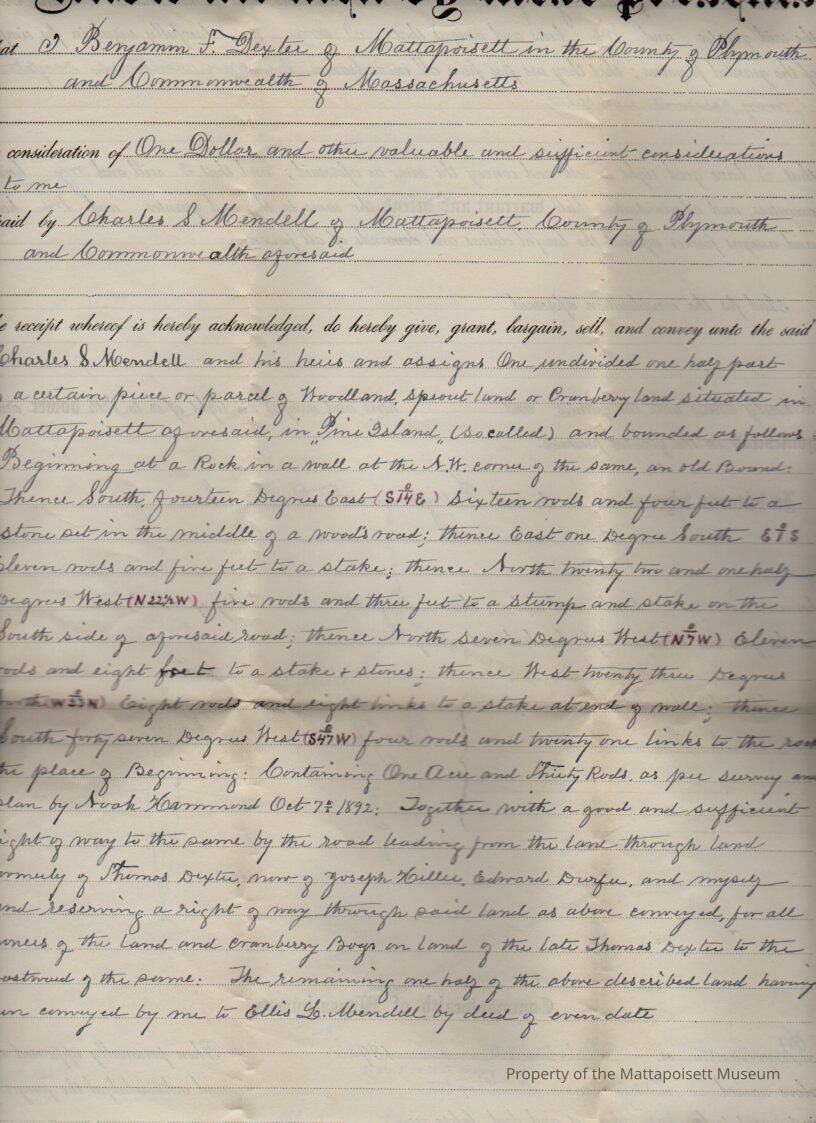 Know all men by these Presents
at I Benjamin F. Dexter of Mattapoisett in the County of Plymouth
and Commonwealth of Massachusetts
consideration of One Dollar and other valuable and sufficient considerations
to me
aid by Charles S Mendell of Mattapoisett, County of Plymouth
and Commonwealth aforesaid
e receipt whereof is hereby acknowledged, do hereby give, grant, bargain, sell, and convey unto the said
Charles S. Mendell and his heirs and assigns One undivided one half part
a certain piece or parcel of Woodland, sprout land or Cranberry land situated in
Mattapoisett aforesaid, in "Pine Island" (so called) and bounded as follows:
Beginning at a Rock in a wall at the N.W. corner of the same, an old Bound:
Thence South, fourteen Degrees East (S14°E) Sixteen rods and four feet to a
stone set in the middle of a wood's road; thence East one Degree South E1°S
eleven rods and five feet to a stake; thence North twenty two and one half
Degrees West (N22½W) five rods and three feet to a stump and stake on the
South side of aforesaid road; thence North seven Degrees West (N7°W) Eleven
rods and eight feet to a stake & stones; thence West twenty three Degrees
North (W23°N) Eight rods and eight links to a stake at end of wall; thence
South forty seven Degrees West (S47°W) four rods and twenty one links to the rock
the place of Beginning: Containing One Acre and Thirty Rods, as per survey an
plan by Noah Hammond Oct 7th 1892; Together with a good and sufficient
ight of way to the same by the road leading from the lane through land
ormerly of Thomas Dexter, now of Joseph Hiller, Edward Durfee, and myself
nd reserving a right of way through said land as above conveyed, for all
owners of the land and cranberry Bogs on land of the late Thomas Dexter to the
eastward of the same: The remaining one half of the above described land having
een conveyed by me to Ellis L. Mendell by deed of even date
Property of the Mattapoisett Museum